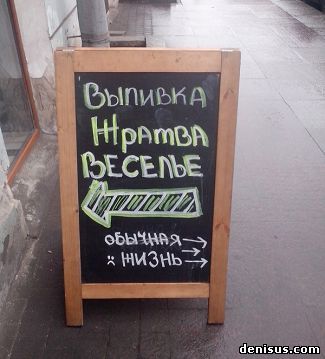 Выпивка
Жратва
Веселье
обычная
:( жизнь
denisus.com